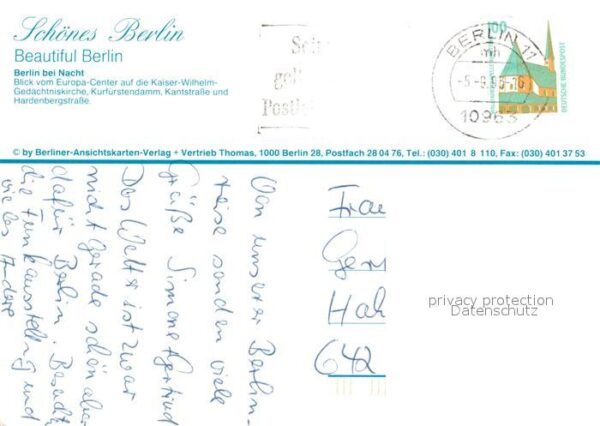 Schönes Berlin
Beautiful Berlin
Berlin bei Nacht
Blick vom Europa-Center auf die Kaiser-Wilhelm-
Gedächtniskirche, Kurfürstendamm, Kantstraße und
Hardenbergstraße.
BERLIN 11
mh
-5-9.95-
10963
100
DEUTSCHE BUNDESPOST
© by Berliner-Ansichtskarten-Verlag + Vertrieb Thomas, 1000 Berlin 28, Postfach 28 04 76, Tel.: (030) 401 8 110, Fax: (030) 401 37 53
Von unserer Berlin-
reise senden viele
Grüße Simone Gertrud
Das Wetter ist zwar
nicht gerade schön aber
dafür Berlin. Besucht
die Funkausstellung und
vieles Andere
Frau
Ger
Hah
642
privacy protection
Datenschutz